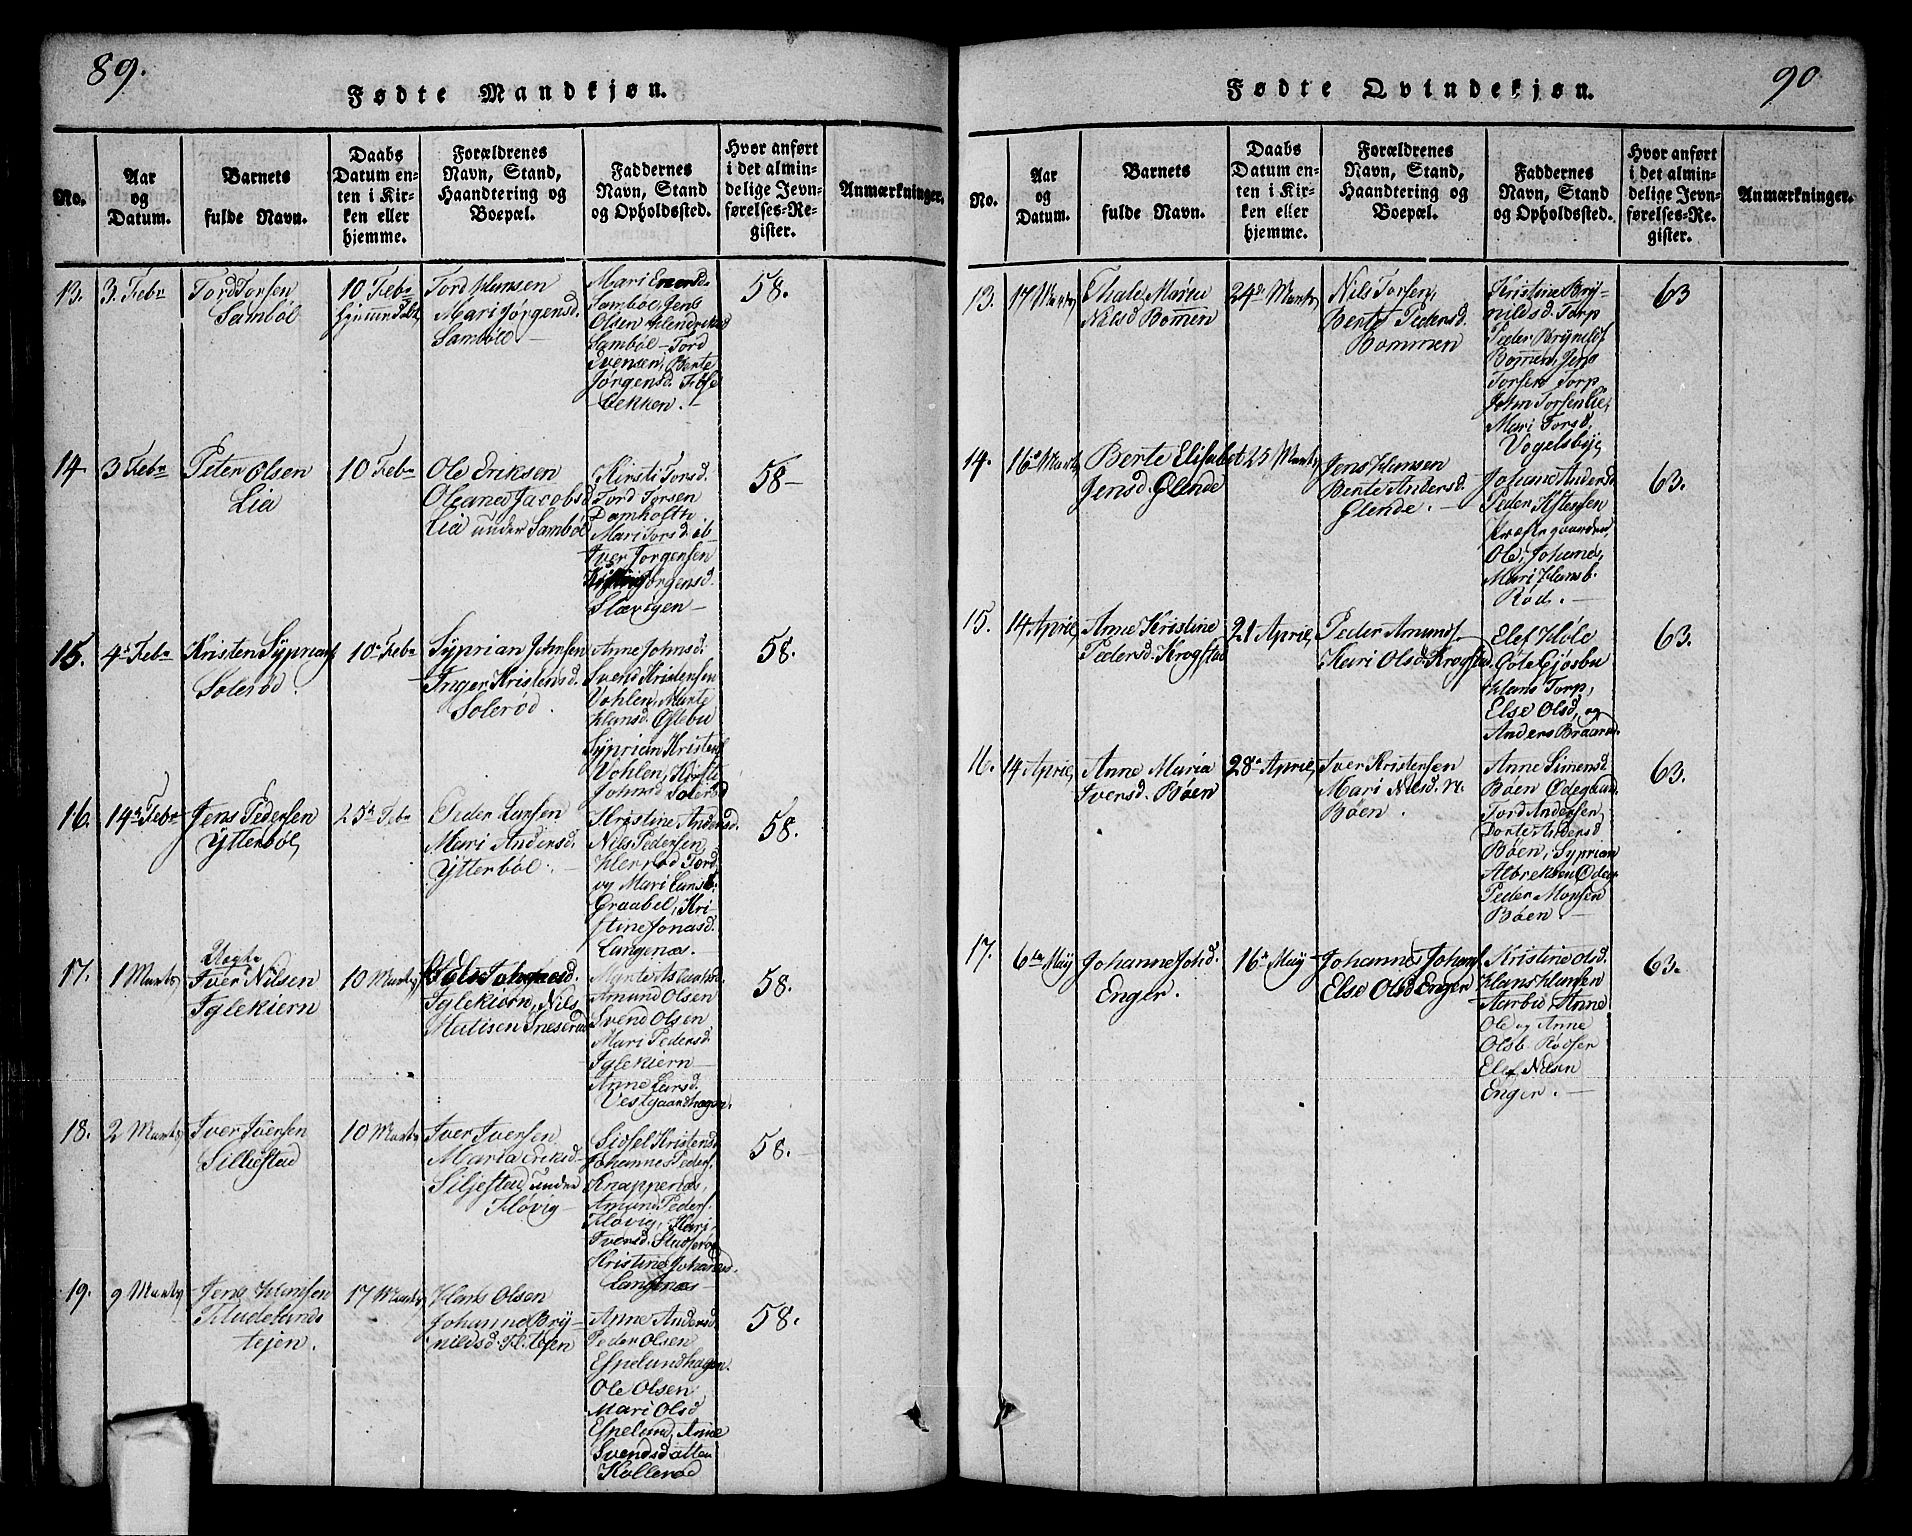 89.
Fødte Mandkjøn.
No.
Aar og Datum.
Barnets fulde Navn.
Daabs Datum enten i Kirken eller hjemme.
Forældrenes Navn, Stand, Haandtering og Boepæl.
Faddernes Navn, Stand og Opholdssted.
Hvor anført i det almindelige Jevnførelses-Register.
Anmærkninger.
13.
3. Febr
Tord Torsen
Sambøl
10 Febr
Tord Hansen
Mari Jørgensd.
Sambøle
Mari
Sambøl, Jens
Olsen
Sambøl - Tord
Svensen, Berte
Jørgensd.
bekken.
58.
14
3 Febr
Peter Olsen
Lia
10 Febr
Ole Eriksen
Oleana Jacobsd
Lia under Sambøl
Kirsti Torsd.
Tord Torsen
Damholtt
Mari Torsd. ib
Iver Jorgensen
Jørgensd.
Slævigen
58-
15.
4 Febr
Kristen Syprians
Solerød.
10 Febr
Syprian Johnsen
Inger Kristensd.
Solerød.
Anne Johnsd.
Svend Kristensen
Vohlen, Marte
Hansd. Østebu
Syprian Kristens
Vohlen, Kirsti
Johnsd Solerød
58.
16.
14 Febr
Jens Pedersen
Ytterbøl
25 Febr
Peder Larsen
Mari Andersd.
Ytterbøl.
Kristine Andersd.
Nils Pedersen
Herrød Tord
og Mari Larsb.
Graabøl, Kri-
stine Jonasd.
Langenæs.
58.
17.
1 Marty
Uægte
Iver Nilsen
Iglekiern
10 Marty
Iglekiern, Nils
Matisen Sneserød
Amund Olsen
Svend Olsen
Mari Pedersd.
Iglekiern
Anne Larsd.
Vestgaardhagen.
58.
18.
2 Marty
Iver Iversen
Silliestad
10 Marty
Iver Iversen
Maria Eriksd
Siljestad under
Kløvig
Sidsel Kristensd
Johannes Peders.
Knappenæs,
Amund Peders.
Kløvig, Kari
Iversd. Studserød
Kristine Johansd
Langenæs
58.
19.
9 Marty
Jens Hansen
Fladelands
tejen.
17 Marty
Hans Olsen
Johanne Bry-
nildsd.
Anne Andersd.
Peder Olsen
Espelundhagen.
Ole Olsen
Mari Olsd
Espelund, Anne
Svendsdatter
Kollerød
58.
90
Fødte Qvindekjøn.
No.
Aar og Datum.
Barnets fulde Navn.
Daabs Datum enten i Kirken eller hjemme.
Forældrenes Navn, Stand, Haandtering og Boepæl.
Faddernes Navn, Stand og Opholdssted.
Hvor anført i det almindelige Jevnførelses-Register.
Anmærkninger.
13.
17 Marty
Thale Maria
Nilsd Bommen
24 Marty
Nils Torsen,
Berte Pedersd.
Bommen
Kristine Bry-
nildsd. Torp
Peder Brynilds
Bommen, Jens
Torsen Torp
John Torsen Lie,
Mari Torsd.
Vogelsbye
63
14.
16 Marty
Berte Elisabet
Jensd. Glende
25 Marty
Jens Hansen
Berte Andersd.
Glende.
Johane Andersd.
Peder
Præstegaarden
Ole, Johane,
Mari Hansb.
Rød.
63.
15.
14 April
Anne Kristine
Pedersd. Krogstad
21 April,
Peder Amunds.
Kari Olsd. Krogstad
Elef Høle
Ole Gjøsbu
Hans Torp,
Else Olsd, og
Anders Braarød
63.
16.
14 April,
Anne Maria
Iversd. Bøen
28 April,
Iver Kristensen
Mari Nilsd. N.
Bøen.
Anne Simensd
Bøen Ødegaard
Tord Andersen,
Dorte Andersd
Bøen, Syprian
Albreksen Ødeg.
Peder Monsen
Bøen
63.
17.
6 May
Johanne Johd.
Enger.
16 May
Johannes Johans
Else Olsd Enger
Kristine Olsd.
Hans Hansen
Aarbu Anne
Ole og Anne
Olsb. Rødser
Elef Nilsen
Enger.
63.